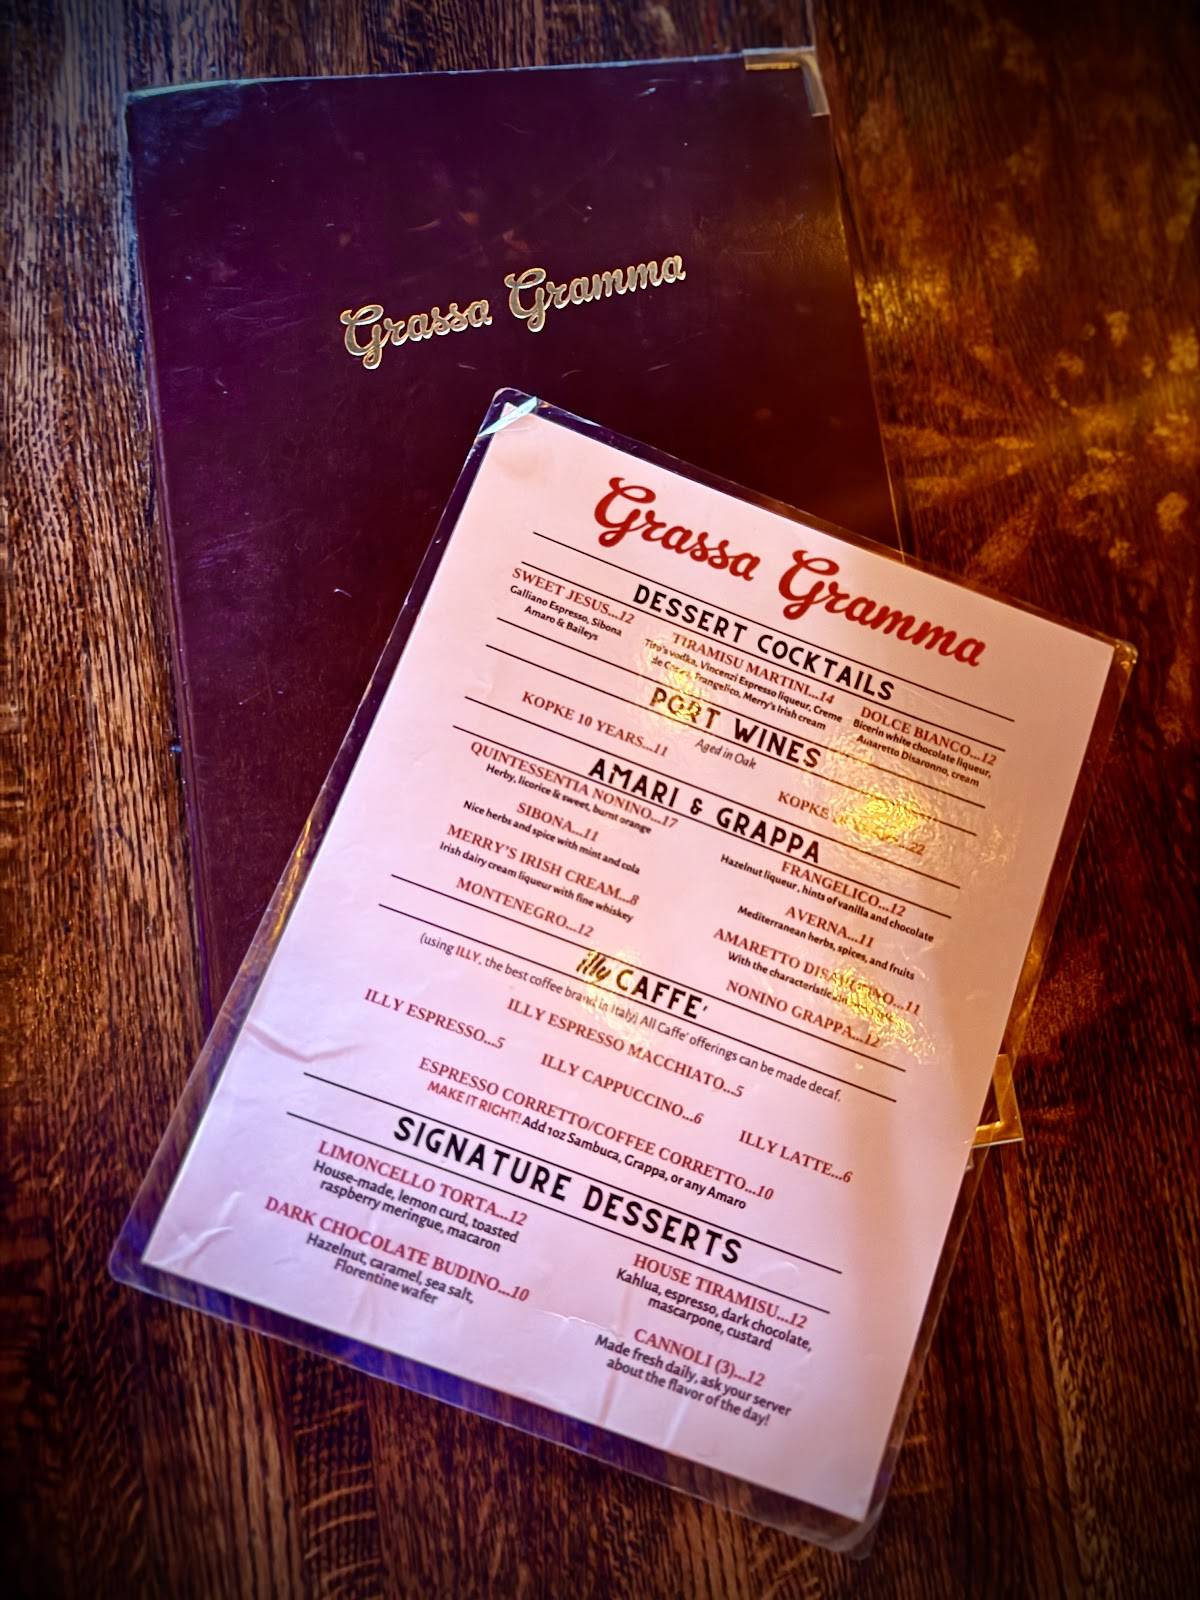 Grassa Gramma
Grassa Gramma
DESSERT COCKTAILS
SWEET JESUS...12
Galliano Espresso, Sibona
Amaro & Baileys
TIRAMISU MARTINI...14
Tito's vodka, Vincenzi Espresso liqueur, Creme
de Cacao, Frangelico, Merry's Irish cream
DOLCE BIANCO...12
Bicerin white chocolate liqueur,
Amaretto Disaronno, cream
PORT WINES
Aged in Oak
KOPKE 10 YEARS...11
KOPKE
22
AMARI & GRAPPA
QUINTESSENTIA NONINO...17
Herby, licorice & sweet, burnt orange
SIBONA...11
Nice herbs and spice with mint and cola
MERRY'S IRISH CREAM...8
Irish dairy cream liqueur with fine whiskey
MONTENEGRO...12
FRANGELICO...12
Hazelnut liqueur, hints of vanilla and chocolate
AVERNA...11
Mediterranean herbs, spices, and fruits
AMARETTO DISARONNO...11
With the characteristic
NONINO GRAPPA...12
illy CAFFE'
(using ILLY, the best coffee brand in Italy) All Caffe' offerings can be made decaf.
ILLY ESPRESSO...5
ILLY ESPRESSO MACCHIATO...5
ILLY CAPPUCCINO...6
ILLY LATTE...6
ESPRESSO CORRETTO/COFFEE CORRETTO...10
MAKE IT RIGHT! Add 1oz Sambuca, Grappa, or any Amaro
SIGNATURE DESSERTS
LIMONCELLO TORTA...12
House-made, lemon curd, toasted
raspberry meringue, macaron
DARK CHOCOLATE BUDINO...10
Hazelnut, caramel, sea salt,
Florentine wafer
HOUSE TIRAMISU...12
Kahlua, espresso, dark chocolate,
mascarpone, custard
CANNOLI (3)...12
Made fresh daily, ask your server
about the flavor of the day!